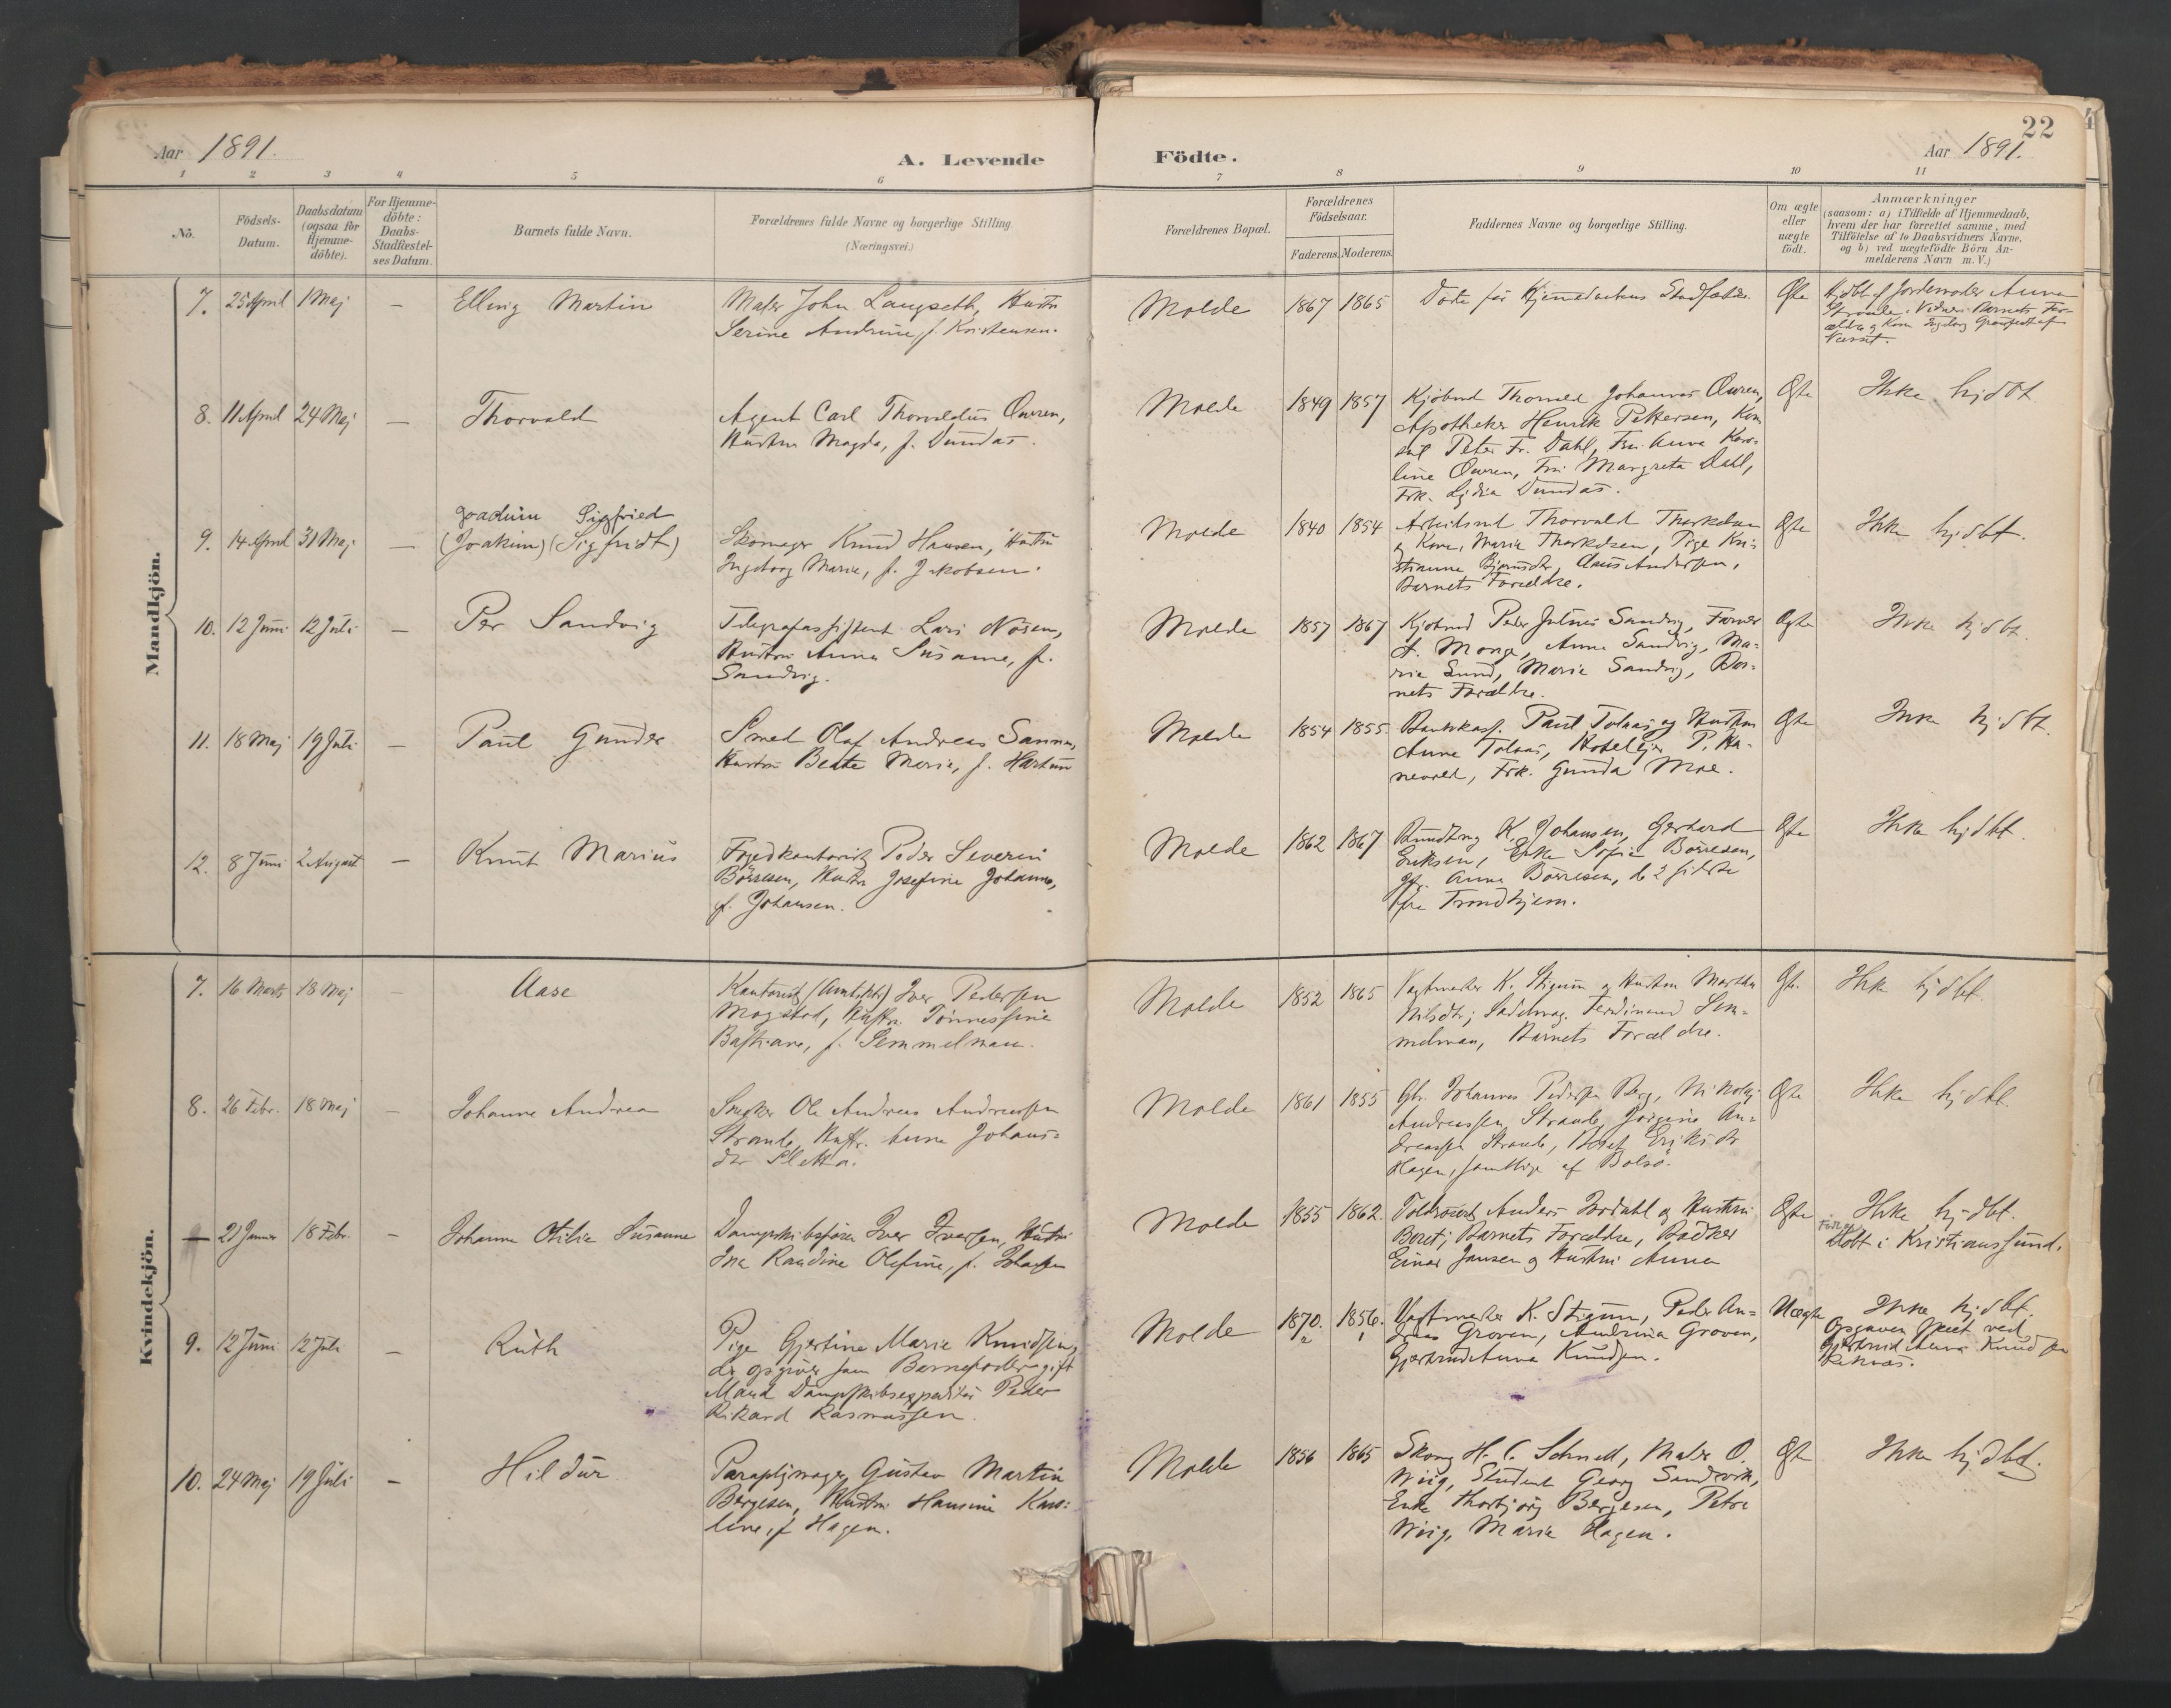 22
Aar 1891.
A. Levende
Födte.
Aar 1891.
1 2 3 4 5 6 7 8 9 10 11
No.
Födsels-
Datum.
Daabsdatum
(ogsaa for
Hjemme-
döbte).
For Hjemme-
döbte:
Daabs-
Stadfæstel-
ses Datum.
Barnets fulde Navn.
Forældrenes fulde Navne og borgerlige Stilling.
(Næringsvei.)
Forældrenes Bopæl.
Forældrenes
Födselsaar.
Faderens. Moderens.
Faddernes Navne og borgerlige Stilling.
Om ægte
eller
uægte
födt.
Anmærkninger
(saasom: a) i Tilfælde af Hjemmedaab,
hvem der har forrettet samme, med
Tilföielse af to Daabsvidners Navne,
og b) ved uægtefödte Börn An-
melderens Navn m. V.)
Mandkjön.
7. 25 April 1 Maj — Elling Martin
Maler John Langseth, Hustru
Serine Andrine, f. Kristensen.
Molde 1867 1865
Døde før Hjemmedaabens Stadfæstelse.
Ægte
Hjdbt af Jordemoder Anna
8. 11 April 24 Maj — Thorvald
Agent Carl Thorvaldus Owren,
Hustru Magda, f. Dundas.
Molde 1849 1857
Kjøbmd Thorvald Johannes Owren,
Apotheker Henrik Pettersen, Kon
sul Peter Fr. Dahl, Fru Anna Karo-
line Owren, Fru Margreta Dahl,
Frk. Lydia Dundas.
Ægte
Ikke hjdbt
9. 14 April 31 Maj — Joachim Sigfried
(Joakim) (Sigfridt)
Skomager Knud Hansen, Hustru
Ingeborg Marie, f. Jakobsen.
Molde 1840 1854
Arbeidsmd Thorvald Thorkelsen
og Kone, Marie Thorkelsen, Pige Kri-
stianna Bjørnsdtr, Claus Andersen,
Barnets Forældre.
Ægte
Ikke hjdbt.
10. 12 Juni 12 Juli — Per Sandvig
Telegrafassistent Lars Nøsen,
Hustru Anna Susanne, f.
Sandvig.
Molde 1857 1867
Kjøbmd Peder Julius Sandvig, Farver
A. Monge, Anna Sandvig, Ma-
rie Lund, Marie Sandvig, Bar-
nets Forældre.
Ægte
Ikke hjdbt.
11. 18 Maj 19 Juli — Paul Gunder
Smed Olaf Andreas Sannes,
Hustru Beate Marie, f. Hartun
Molde 1854 1855.
Bankkass. Paul Tolaas og Hustru
Anna Tolaas, Hotelejer P. Ha-
nevold, Frk. Gunda Moe.
Ægte
Ikke hjdbt.
12. 8 Juni 2 August — Knut Marius
Fogedkontorist Peder Severin
Børresen, Hustru Josefine Johanne,
f. Johansen.
Molde 1862 1867
K. Johansen, Gerhard
Eriksen, Enke Sofie Børresen,
Anna Børresen, de 2 sidste
fra Trondhjem.
Ægte
Ikke hjdbt.
Kvindekjön.
7. 16 Marts 18 Maj — Aase
Kontorist (Amtsktr) Iver Pedersen
Magstad, Hustru Tønnessine
Bastiane, f. Semmelman.
Molde 1852 1865
Vagtmester K. Stigum og Hustru Martha
Nilsdtr; Sadelmag. Ferdinand Sem-
melman, Barnets Forældre.
Ægte.
Ikke hjdbt.
8. 26 Febr. 18 Maj — Johanne Andrea
Snedker Ole Andreas Andreassen
Strande, Hustr. Anna Johans-
dtr Sletta.
Molde 1861 1855
Gbr. Johannes Pedersen Berg, Nikolaj
Andreassen Strande, Jørgine An-
dreassen Strande, Beret Eriksdtr
Hagen, samtlige af Bolsø.
Ægte
Ikke hjdbt.
— 21 Januar 18 Febr. — Johanne Otilie Susanne
Dampskibsfører Iver Iversen, Hustru
Ine Randine Olefine, f. Johansen
Molde 1855 1862.
Anders Bordahl og Hustru
Beret; Barnets Forældre, Bødker
Einar Jansen og Hustru Anna
Ægte
Ikke hjdbt.
Født og
Døbt i Kristianssund.
9. 12 Juni 12 Juli — Ruth
Pige Gjertine Marie Knudsen,
der opgiver som Barnefader gift
Mand Dampskibsexpeditør Peder
Rikard Rasmussen.
Molde 1870. 1856.
Vagtmester K. Stigum, Peder An-
dreas Groven, Andrina Groven,
Gjertrud Anna Knudsen.
Uægte
Ikke hjdbt.
Opgaven skeet ved
Gjertrud Anna Knudsen
Reknæs.
10. 24 Maj 19 Juli — Hildur
Paraplymager Gustav Martin
Bergesen, Hustru Hansine Karo-
line, f. Hagen.
Molde 1856 1865
Skomg H. C. Schnell, Maler O.
Wiig, Student Georg Sandvik,
Enke Thorbjørg Bergesen, Petra
Wiig, Marie Hagen.
Ægte
Ikke hjdbt.